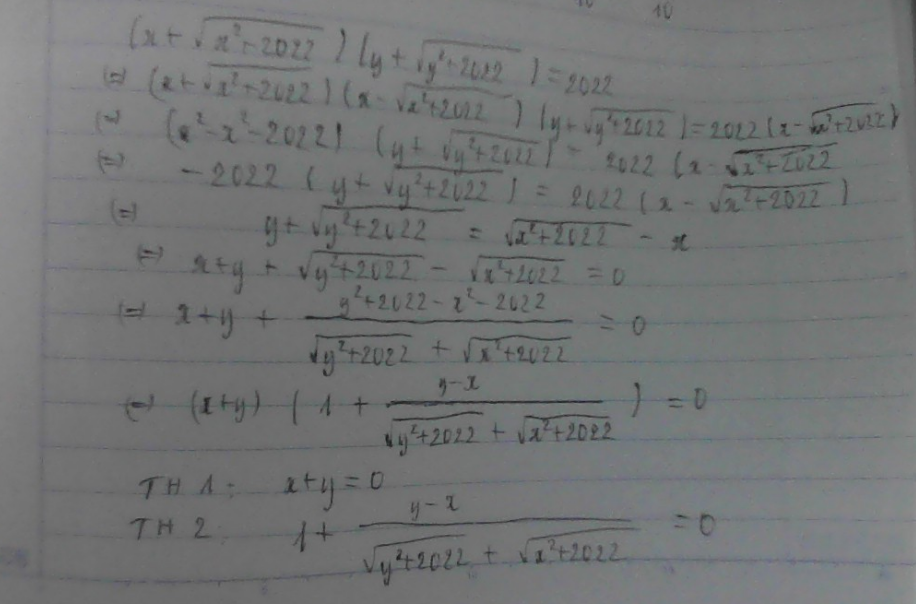 10 10
(x + √(x²+2022)) (y + √(y²+2022)) = 2022
(=) (x + √(x²+2022)) (x - √(x²+2022)) (y + √(y²+2022)) = 2022 (x - √(x²+2022))
(=) (x² - x² - 2022) (y + √(y²+2022)) = 2022 (x - √(x²+2022)
(=) - 2022 (y + √(y²+2022)) = 2022 (x - √(x²+2022))
(=) y + √(y²+2022) = √(x²+2022) - x
(=) x+y + √(y²+2022) - √(x²+2022) = 0
(=) x+y + (y²+2022 - x² - 2022)/(√(y²+2022) + √(x²+2022)) = 0
(=) (x+y) (1 + (y-x)/(√(y²+2022) + √(x²+2022))) = 0
TH 1: x+y = 0
TH 2: 1 + (y-x)/(√(y²+2022) + √(x²+2022)) = 0